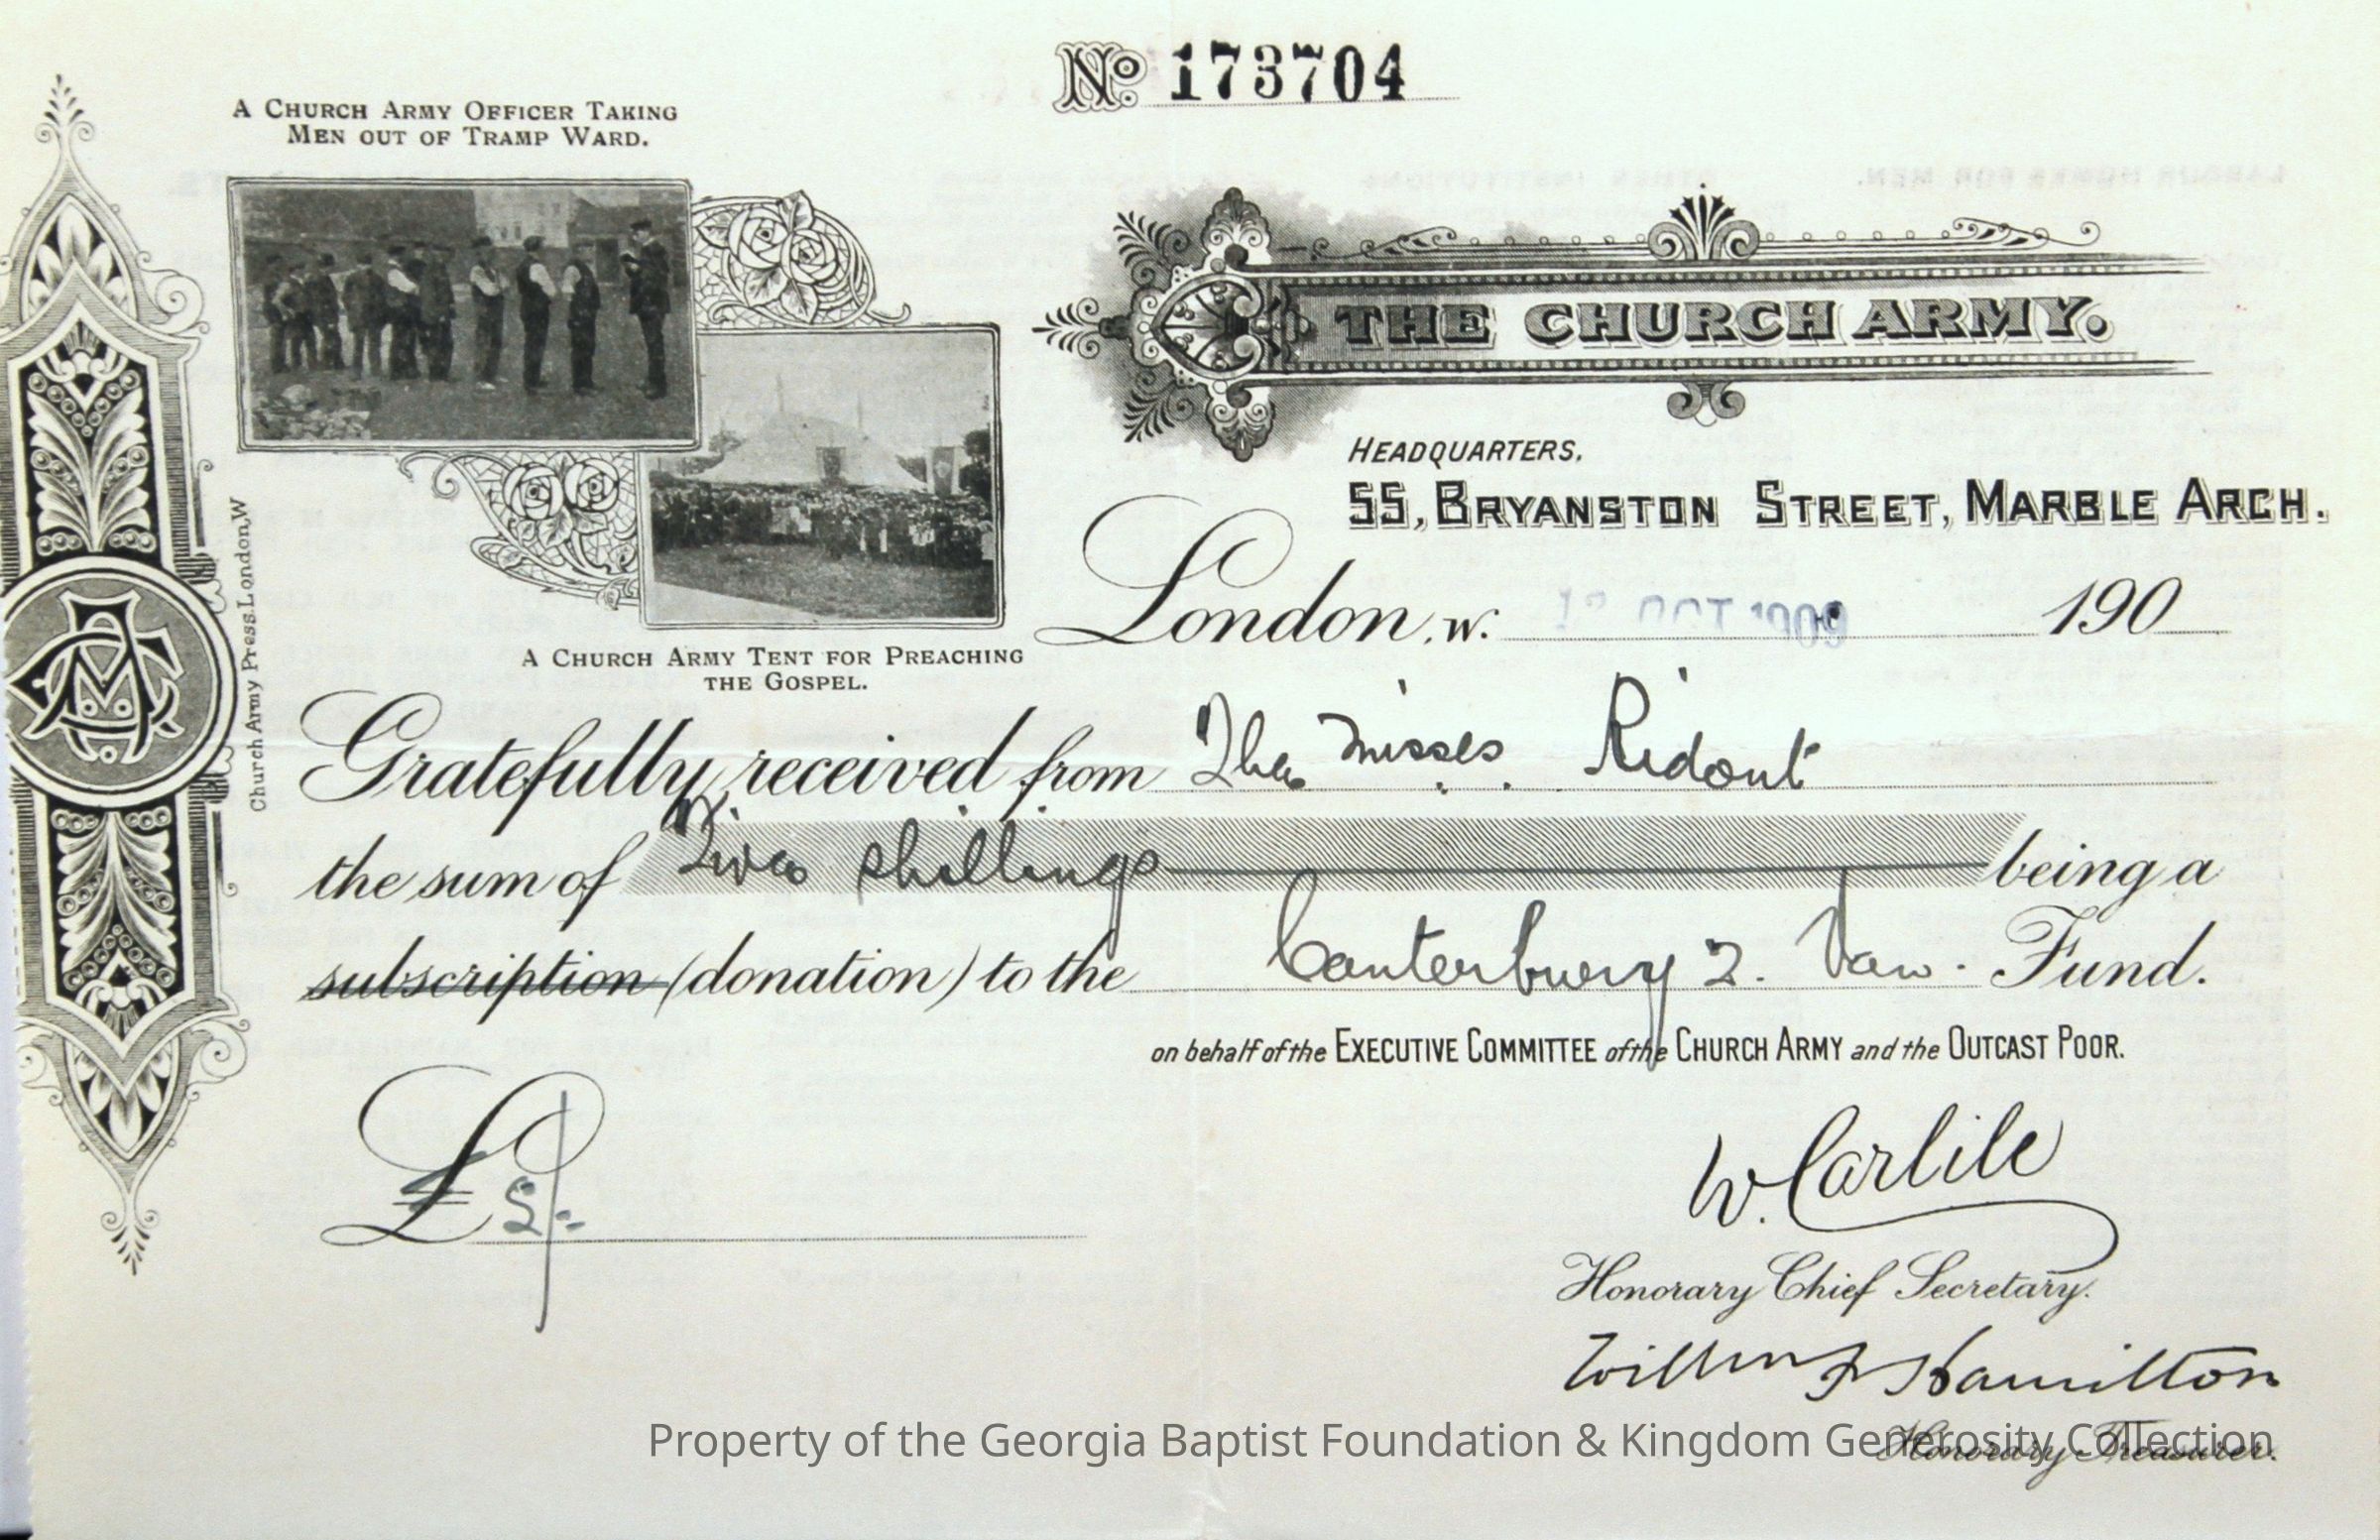 No. 173704
A CHURCH ARMY OFFICER TAKING
MEN OUT OF TRAMP WARD.
THE CHURCH ARMY.
HEADQUARTERS,
55, BRYANSTON STREET, MARBLE ARCH.
London, W. OCT 1909 190
A CHURCH ARMY TENT FOR PREACHING
THE GOSPEL.
Church Army Press. London, W
Gratefully received from The Misses Ridout
the sum of shillings being a
subscription (donation) to the Canterbury 2. Van. Fund.
on behalf of the EXECUTIVE COMMITTEE of the CHURCH ARMY and the OUTCAST POOR.
£
W. Carlile
Honorary Chief Secretary.
Hamilton
Honorary Treasurer.
Property of the Georgia Baptist Foundation & Kingdom Generosity Collection